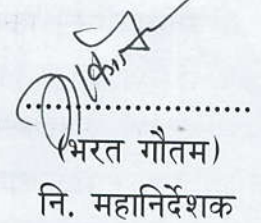 (भरत गौतम)
नि. महानिर्देशक